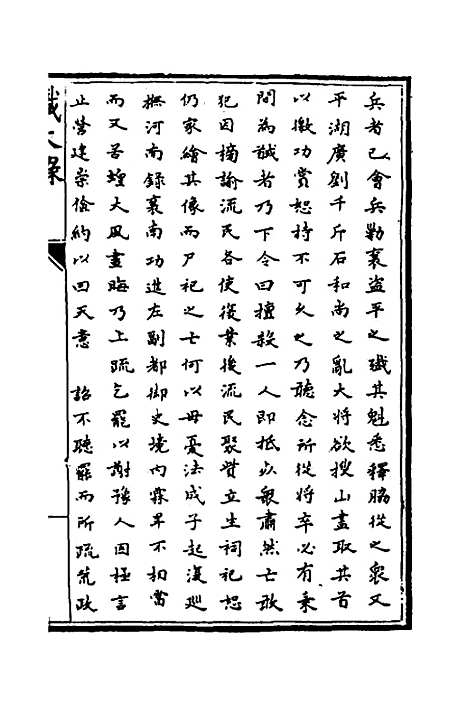 兵者已會兵勦襄盜平之殲其魁悉釋脇從之衆又
平湖廣劉千斤石和尚之亂大將欲搜山盡取其首
以徼功賞恕持不可久之乃聽念所從將卒必有乗
間為誠者乃下令曰擅殺一人即抵必衆肅然亡敢
犯因榜諭流民各使復業後流民聚貲立生祠祀恕
仍家繪其像而尸祀之亡何以母憂法成子起復廵
撫河南錄襄南功進左副都御史境内霖旱不相當
而又苦蝗大風晝晦乃上疏乞罷以謝豫人因極言
止營建崇儉約以回天意 詔不聽罷而所疏荒政